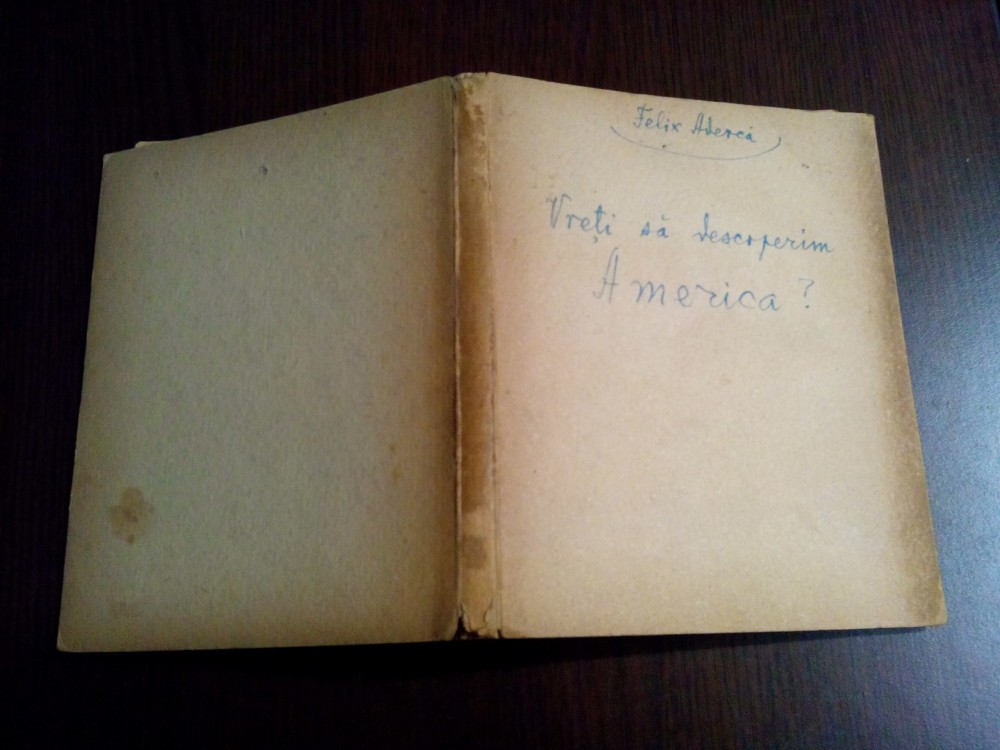 Felix Aderca
Vreți să descoperim
America?